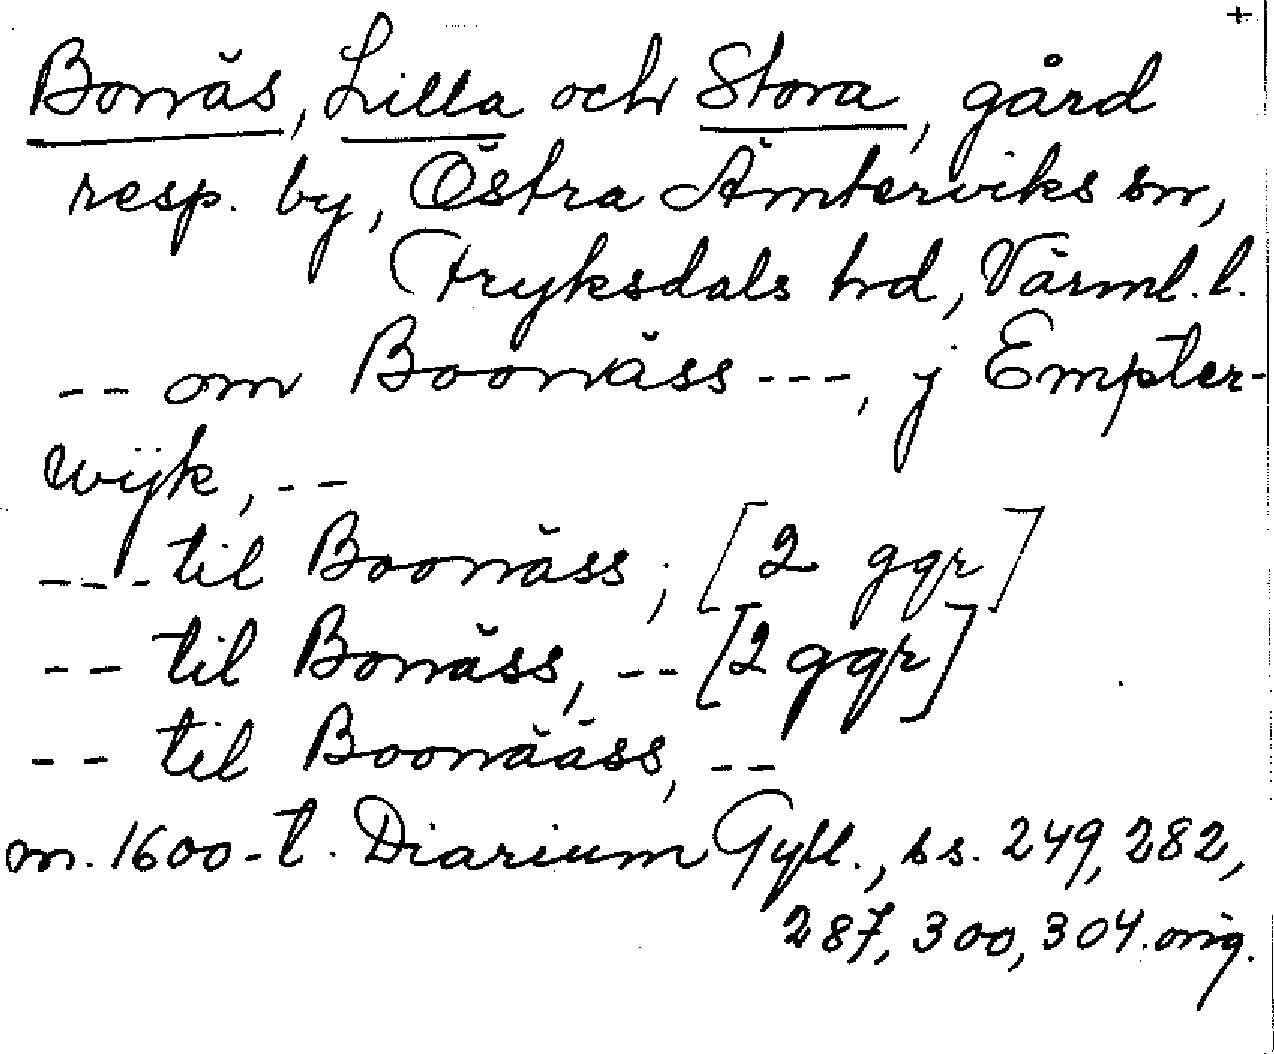 +
Bonäs, Lilla och Stora, gård
resp. by, Östra Ämterviks sn,
Fryksdals hd, Värml. l.
-- om Boonäss ---, j Empter-
wijk, --
--- til Boonäss, [2 ggr]
-- til Bonäss, -- [2 ggr]
-- til Boonääss, --
m. 1600-t. Diarium Gyll., ss. 249, 282,
287, 300, 304. orig.